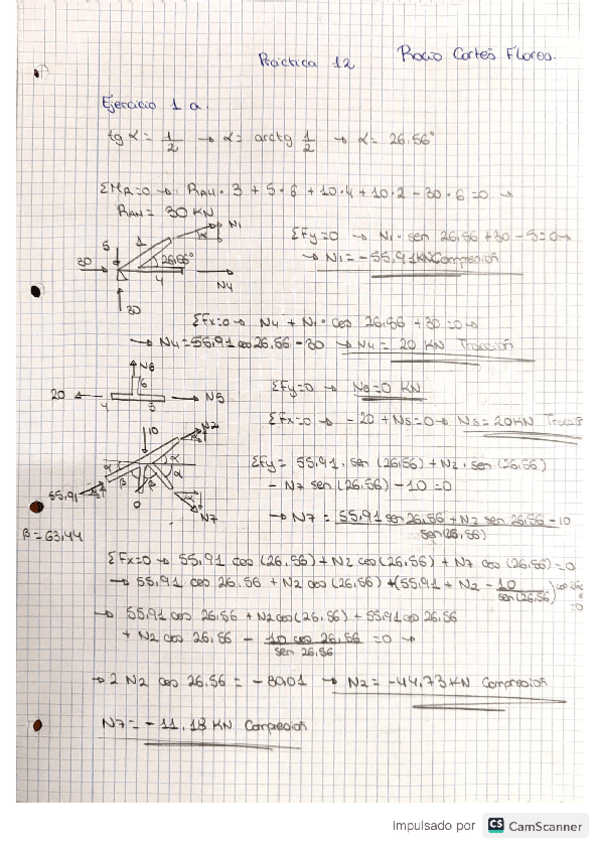 Práctica 12
Rocio Cortés Flores.
Ejercicio 1 a.
tg α = 1/2 → α = arctg 1/2 → α = 26.56°
ΣMA=0 → RAH · 3 + 5 · 6 + 10 · 4 + 10 · 2 - 30 · 6 = 0 →
RAH = 30 KN
5 1 α N1
30 26,56° 4 N4
30
ΣFy=0 → N1 · sen 26,56 + 30 - 5 = 0 →
→ N1 = -55,91 KN Compresión
ΣFx=0 → N4 + N1 · cos 26,56 + 30 = 0 →
→ N4 = 55,91 cos 26,56 - 30 → N4 = 20 KN Tracción
N6
6
20 4 5 N5
ΣFy=0 → N6=0 KN
ΣFx=0 → -20 + N5 = 0 → N5 = 20KN
10 N2
α α α
β β
55,91 0 N7
β = 63,44
ΣFy = 55,91 · sen (26,56) + N2 · sen (26,56)
- N7 sen (26,56) - 10 = 0
→ N7 = 55,91 sen 26,56 + N2 sen 26,56 - 10
sen(26,56)
ΣFx=0 → 55,91 cos (26,56) + N2 cos (26,56) + N7 cos (26,56) = 0
→ 55,91 cos 26.56 + N2 cos (26,56) + (55,91 + N2 - 10/sen(26,56)) cos 26,56 = 0
→ 55,91 cos 26.56 + N2 cos (26,56) + 55,91 cos 26.56
+ N2 cos 26,56 - 10 cos 26,56 = 0 →
sen 26,56
→ 2 N2 cos 26.56 = -80,01 → N2 = -44,73 KN Compresión
N7 = -11,18 KN Compresión
Impulsado por CS CamScanner